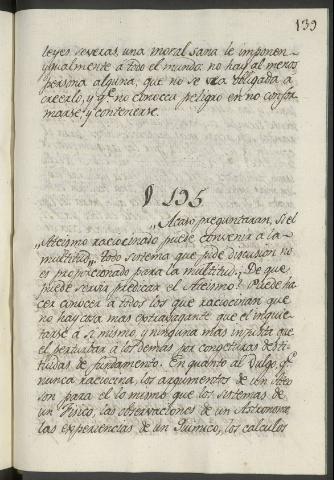 139
leyes severas, una moral sana le imponen
ygualmente à todo el mundo: no hay al menos
persona alguna, que no se vea obligada a
creerlo, y qᵉ no conozca peligro en no confor
marse, y contenerse.
§ 195
„Acaso preguntaran, si el
„Ateismo raciocinado puede convenir a la
multitud„ todo sistema que pide discusion no
es proporcionado para la multitud. ¿De que
puede servir predicar el Ateismo? Puede ha
cer conocer à todos los que raciocinan que
no hay cosa mas extravagante que el inquie
tarse à si mismo, y ninguna mas injusta que
el perturbar à los demas por congeturas desti
tuidas de fundamento. En quanto al Vulgo, qᵉ
nunca raciocina, los argumentos de un Ateo
son para el lo mismo que los sistemas de
un Fisico, las observaciones de un Astronomo,
las experiencias de un Quimico, los calculos